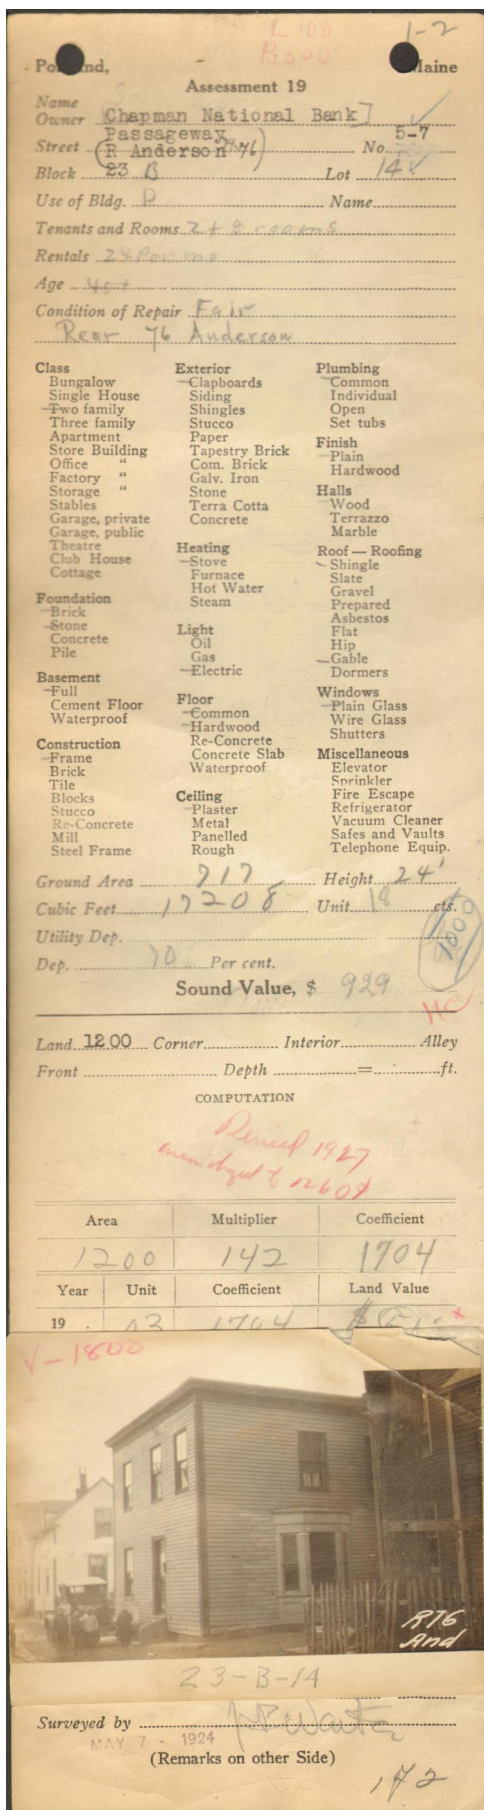 L 100
B 500
1-2
Portland, Maine
Assessment 19
Name
Owner Chapman National Bank]
Passageway
Street (R Anderson 74-76) No. 5-7
Block 23 B Lot 14
Use of Bldg. D Name
Tenants and Rooms 2 + 8 rooms
Rentals 24 Per mo
Age 40+
Condition of Repair Fair
Rear 76 Anderson
Class
Bungalow
Single House
Two family
Three family
Apartment
Store Building
Office "
Factory "
Storage "
Stables
Garage, private
Garage, public
Theatre
Club House
Cottage
Foundation
Brick
Stone
Concrete
Pile
Basement
Full
Cement Floor
Waterproof
Construction
Frame
Brick
Tile
Blocks
Stucco
Re-Concrete
Mill
Steel Frame
Exterior
Clapboards
Siding
Shingles
Stucco
Paper
Tapestry Brick
Com. Brick
Galv. Iron
Stone
Terra Cotta
Concrete
Heating
Stove
Furnace
Hot Water
Steam
Light
Oil
Gas
Electric
Floor
Common
Hardwood
Re-Concrete
Concrete Slab
Waterproof
Ceiling
Plaster
Metal
Panelled
Rough
Plumbing
Common
Individual
Open
Set tubs
Finish
Plain
Hardwood
Halls
Wood
Terrazzo
Marble
Roof — Roofing
Shingle
Slate
Gravel
Prepared
Asbestos
Flat
Hip
Gable
Dormers
Windows
Plain Glass
Wire Glass
Shutters
Miscellaneous
Elevator
Sprinkler
Fire Escape
Refrigerator
Vacuum Cleaner
Safes and Vaults
Telephone Equip.
Ground Area 717 Height 24'
Cubic Feet 17208 Unit 18 cts.
Utility Dep.
1000
Dep. 70 Per cent.
Sound Value, $ 929
Land 1200 Corner Interior Alley
Front Depth = ft.
COMPUTATION
Revised 1927
Area Multiplier Coefficient
1200 142 1704
Year Unit Coefficient Land Value
19 03 1704 $
V-1800
R76
And
23-B-14
Surveyed by
MAY 7 - 1924
(Remarks on other Side)
172